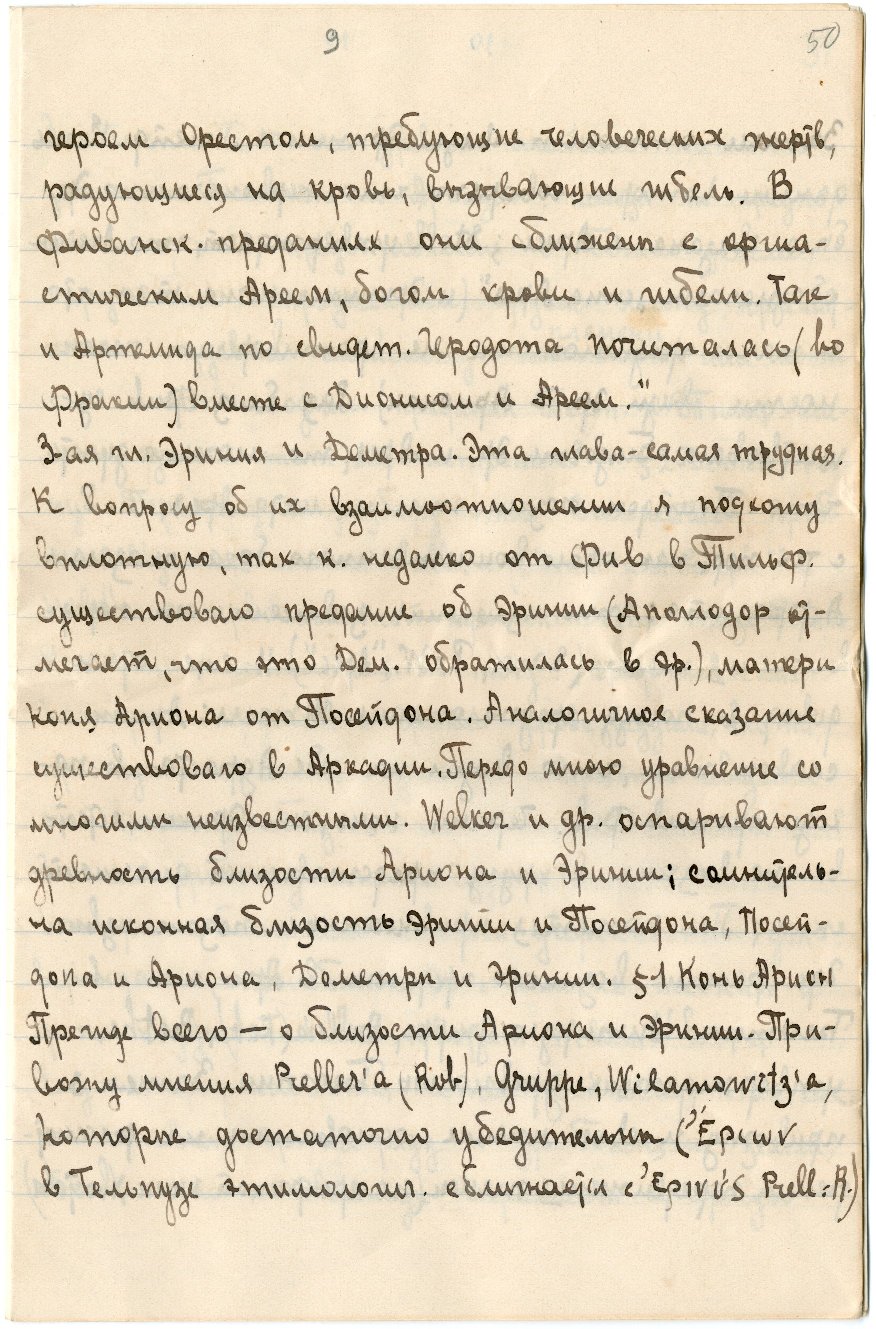 9 50
героем Орестом, требующие человеческих жертв,
радующиеся на кровь, вызывающие гибель. В
Фиванск. преданиях они сближены с оргиа-
стическим Ареем, богом крови и гибели. Так
и Артемида по свидет. Геродота почиталась (во
Фракии) вместе с Дионисом и Ареем."
3-ая гл. Эриния и Деметра. Эта глава - самая трудная.
К вопросу об их взаимоотношении я подхожу
вплотную, так к. недалеко от Фив в Тильф.
существовало предание об Эринии (Аполлодор от-
мечает, что это Дем. обратилась в Эр.), матери
коня Ариона от Посейдона. Аналогичное сказание
существовало в Аркадии. Передо мною уравнение со
многими неизвестными. Welker и др. оспаривают
древность близости Ариона и Эринии; сомнитель-
на исконная близость Эринии и Посейдона, Посей-
дона и Ариона, Деметры и Эринии. §1 Конь Арион
Прежде всего — о близости Ариона и Эринии. При-
вожу мнения Preller'а (Rob), Gruppe, Wilamowitz'а,
которые достаточно убедительны (Ἐρίων
в Тельпузе этимологич. сближается с Ἐρινύς Prell-R.)